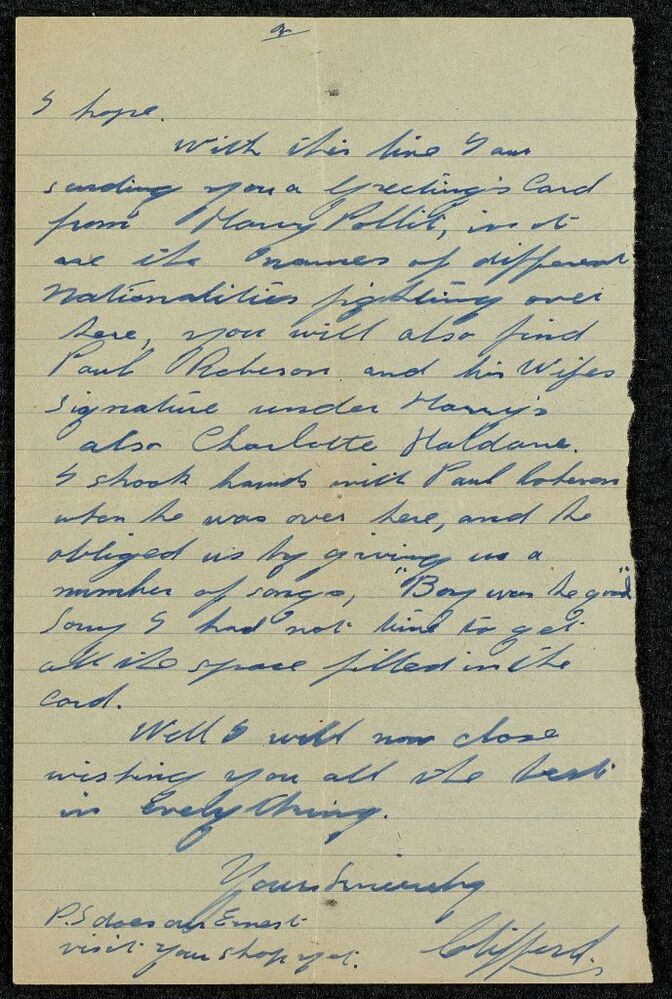 I hope.
With this line I am
sending you a Greeting's Card
from Harry Pollit, in it
are the names of different
Nationalities fighting over
here, you will also find
Paul Robeson and his Wifes
Signature under Harry's
also Charlotte Haldane.
I shook hands with Paul Robeson
when he was over here, and he
obliged us by giving us a
number of songs, "Boy was he good"
Sorry I had not time to get
all the space filled in the
Card.
Well I will now close
wishing you all the best
in Everything.
Yours Sincerely
Clifford.
P.S does our Ernest
visit your shop yet.